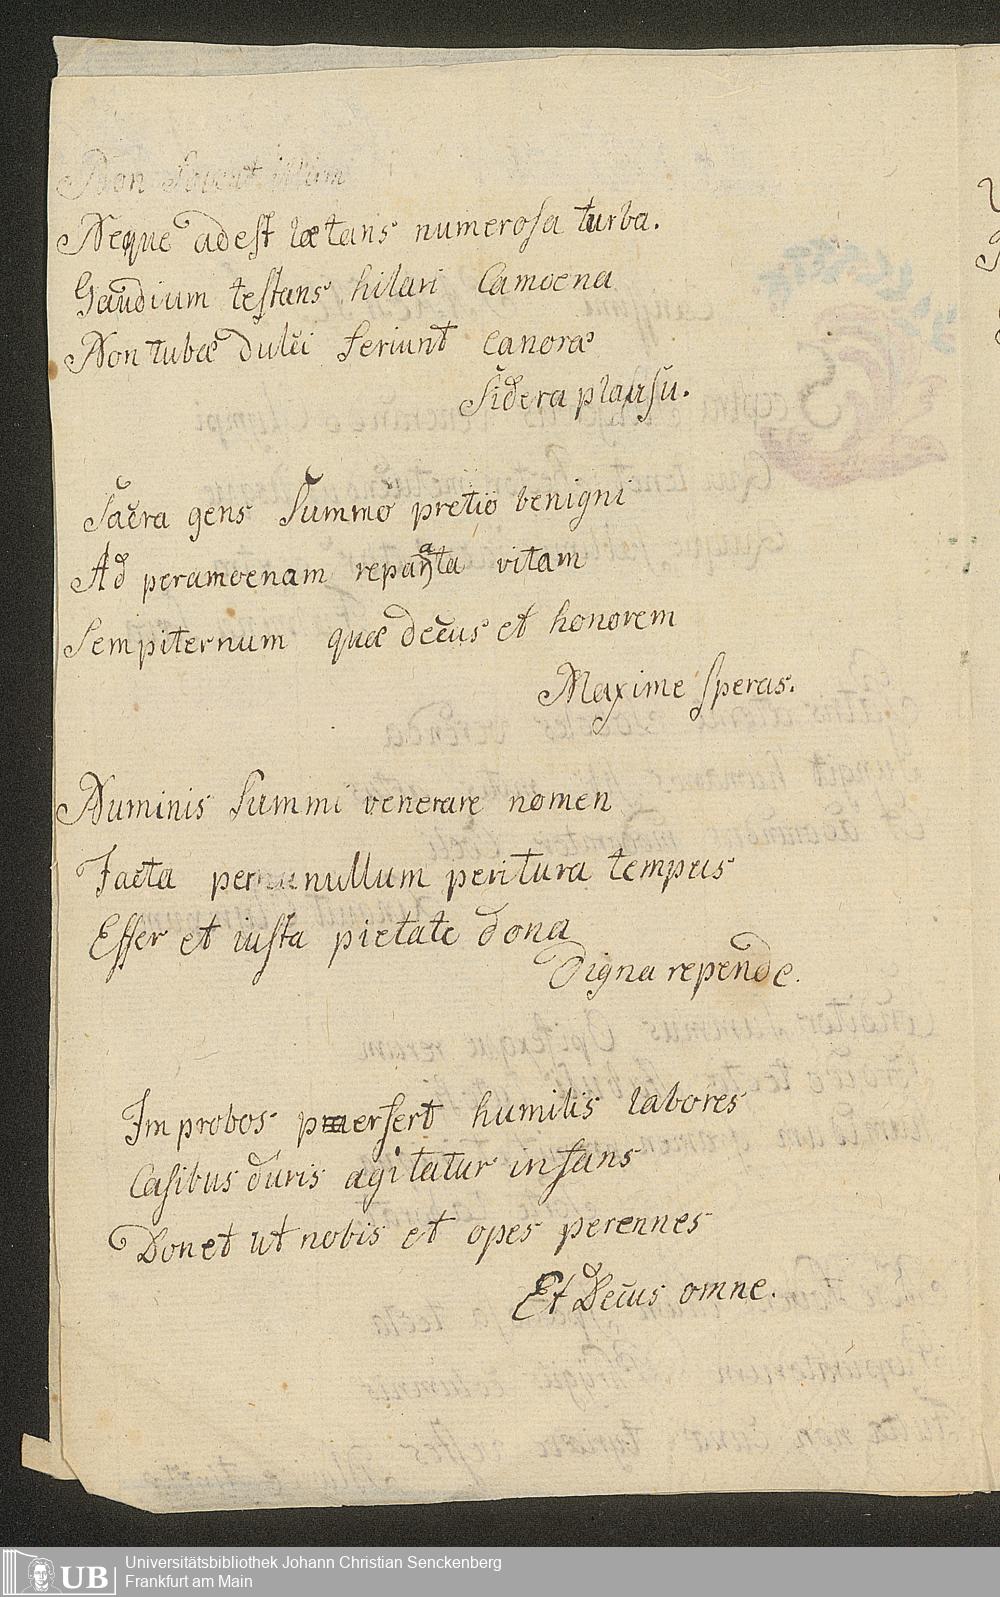 Non fovent illum
Neque adest lætans numerosa turba.
Gaudium testans hilari Camoena
Non tubæ dulci feriunt canoræ
Sidera plausu.
Sacra gens Summo pretio benigni
Ad peramoenam reparata vitam
Sempiternum quæ decus et honorem
Maxime speras.
Numinis Summi venerare nomen
Facta per nullum peritura tempus
Effer et iusta pietate dona
Digna repende.
Improbos perfert humilis labores
Casibus duris agitatur infans
Donet ut nobis et opes perennes
Et Decus omne.
UB
Universitätsbibliothek Johann Christian Senckenberg
Frankfurt am Main